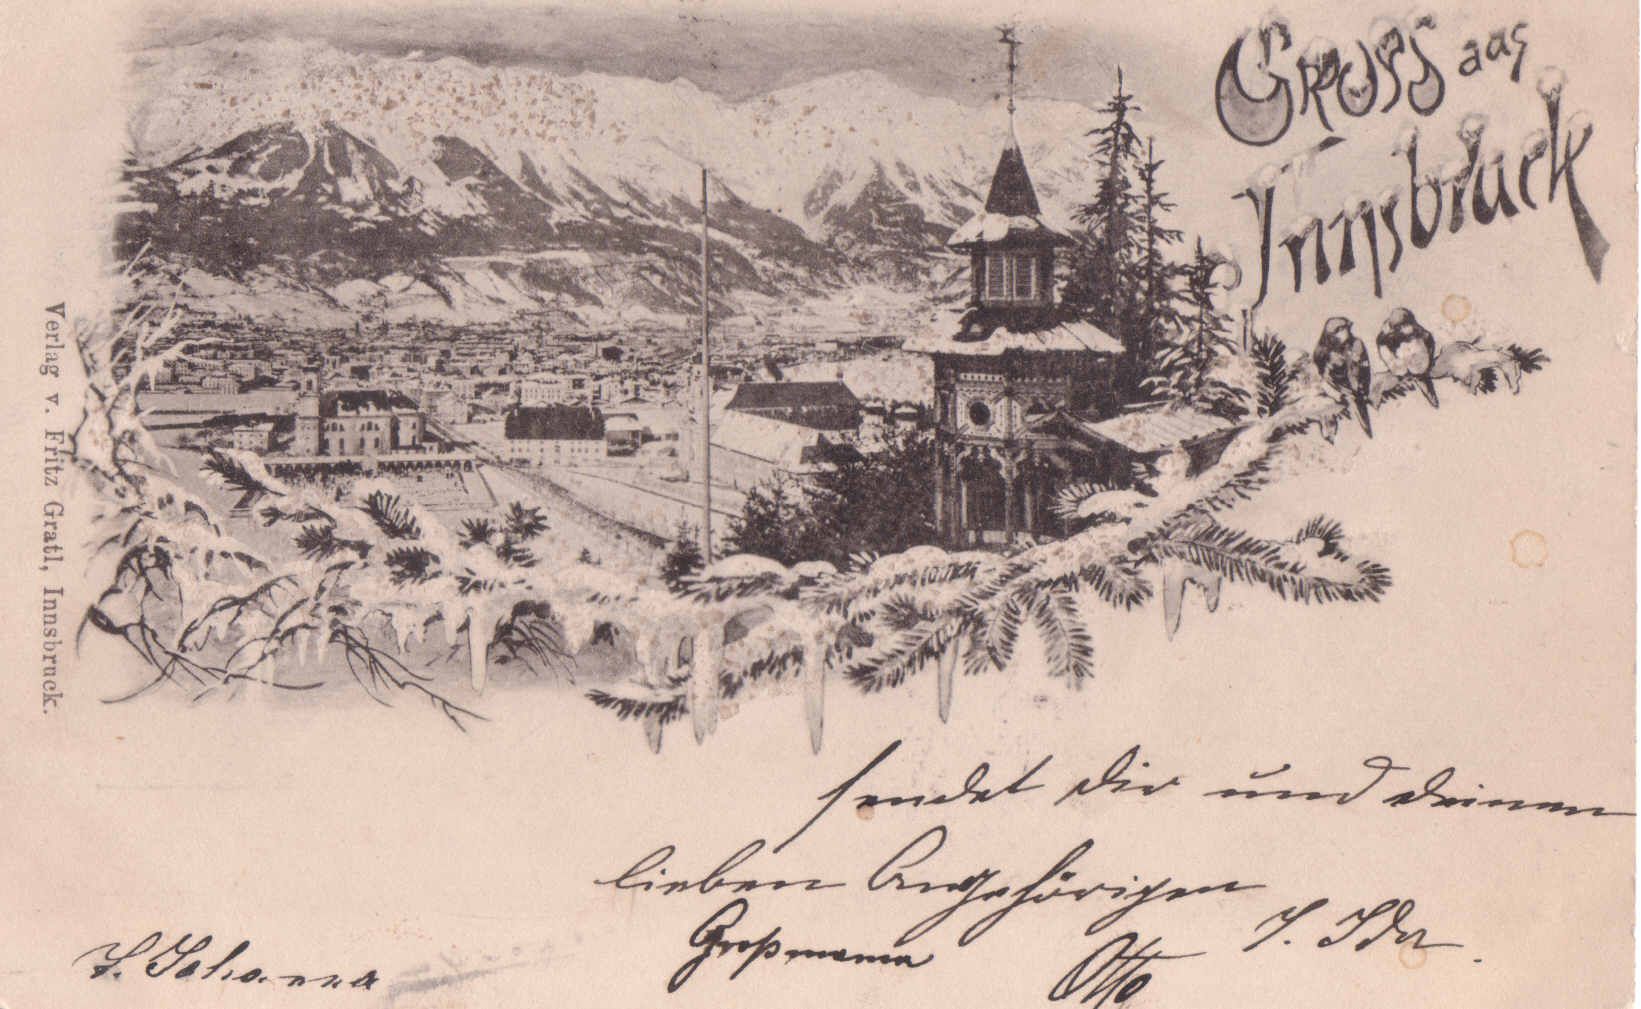 Gruss aus
Innsbruck
Verlag v. Fritz Gratl, Innsbruck.
sendet dir und deinen
lieben Angehörigen
Großmama
T. Ida.
Otto
T. Johanna